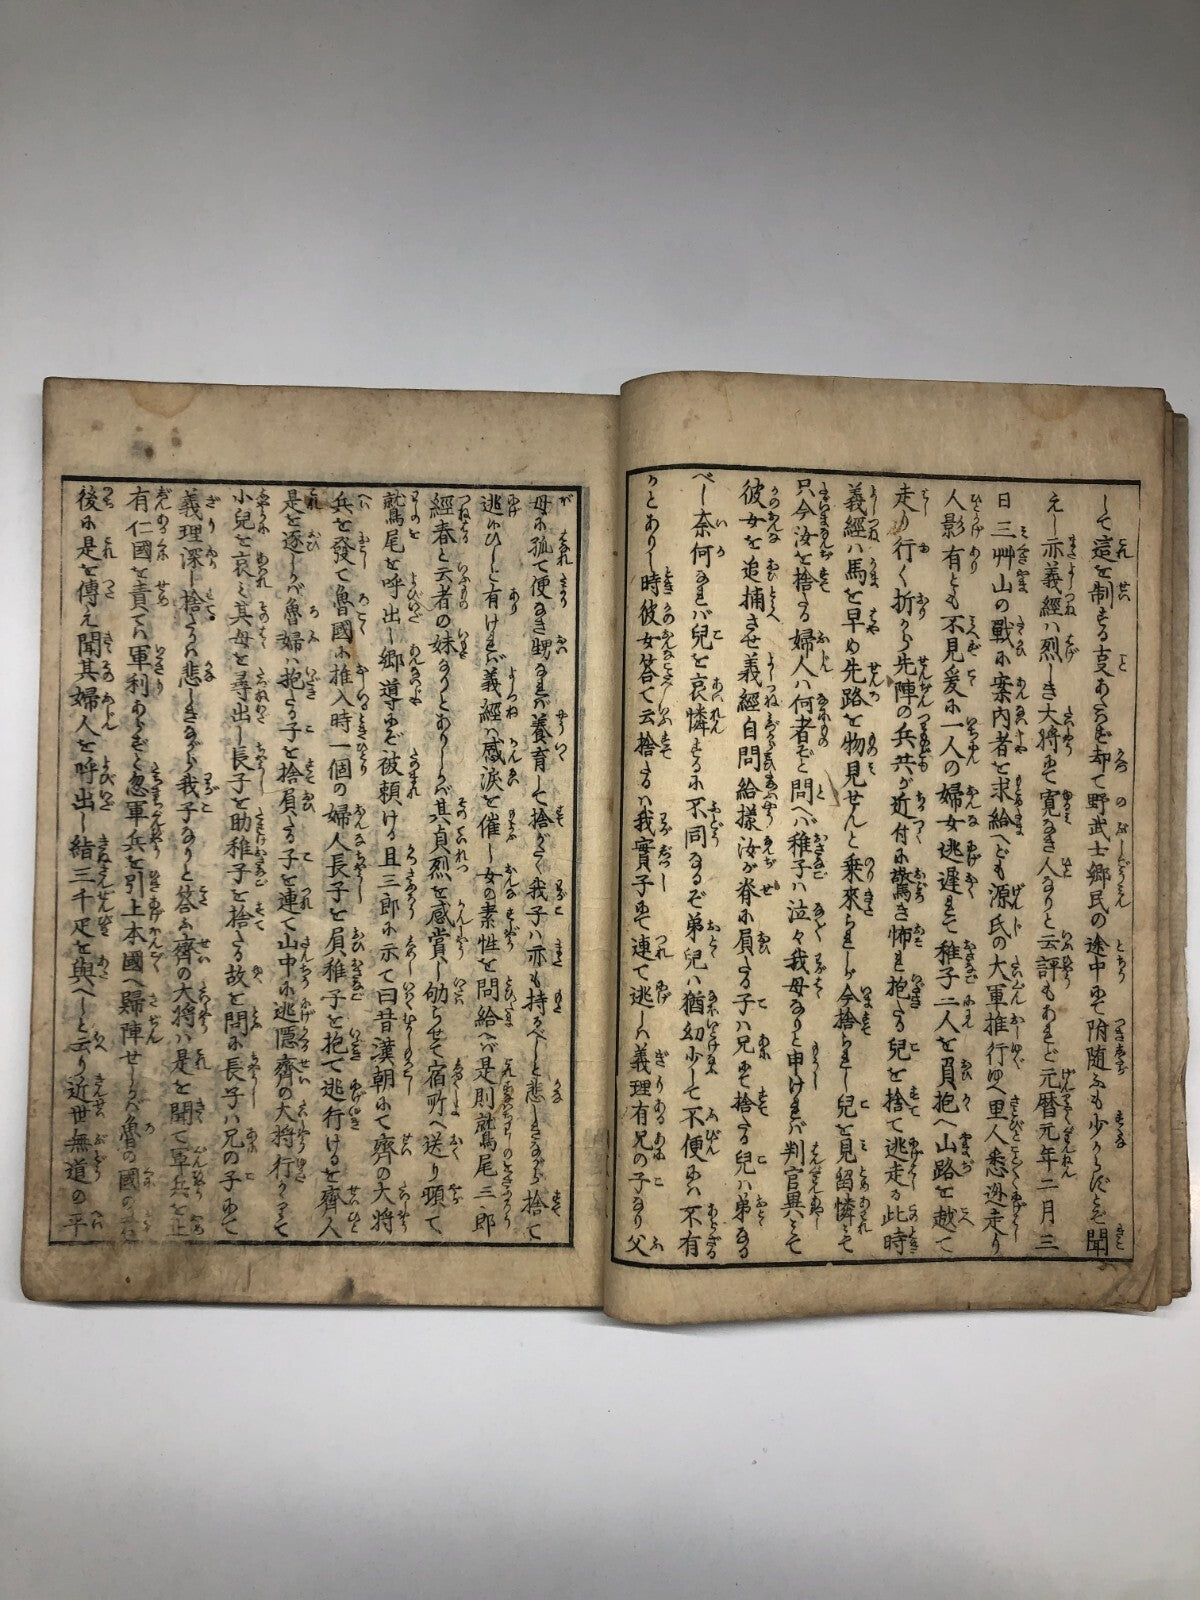 して這を制する事あたはず却て野武士郷民の途中にて附随ふも少からずとぞ聞
えし亦義經ハ烈しき大將にて寛なき人なりと云評もあれど元暦元年二月三
日三艸山の戰に案内者を求給へども源氏の大軍推行ゆへ里人悉迯走り
人影有とも不見爰に一人の婦女逃遅れて稚子二人を負抱へ山路を越て
走り行く折から先陣の兵共が近付に驚き怖れ抱たる兒を捨て逃走る此時
義經ハ馬を早め先路を物見せんと乗來られしが今捨られし兒を見留憐とて
只今汝を捨たる婦人ハ何者ぞと問へバ稚子ハ泣々我母なりと申けれバ判官異とて
彼女を追捕させ義經自問給樣汝が脊に負たる子ハ兄にて捨たる兒ハ弟なる
べし奈何なれバ兒を哀憐するに不同なるぞ弟兒ハ猶幼少して不便にハ不有
かとありし時彼女答て云捨たるハ我實子にて連て逃しハ義理有兄の子なり父
母に孤て便なき甥なれバ養育して捨がたく我子ハ亦も持べしと悲しきながら捨て
逃にひしと有けれバ義經ハ感涙を催し女の素性を問給へバ是則鷲尾三郎
經春と云者の妹なりとありしかバ其貞烈を感賞し劬らせて宿所へ送り頓て
鷲尾を呼出し郷導にぞ被頼ける且三郎に示て曰昔漢朝にて齊の大將
兵を發て魯國に推入時一個の婦人長子を肩稚子を抱て逃行けるを齊人
是を逐しかバ魯婦ハ抱たる子を捨肩たる子を連て山中に逃隠齊の大將行かゝりて
小兒を哀ミ其母を尋出し長子を助稚子を捨たる故を問に長子ハ兄の子にて
義理深し捨たるハ悲しきながら我子なりと答ふ齊の大將ハ是を聞て軍兵を止
有仁國を責てハ軍利あらずと忽軍兵を引上本國へ歸陣せしかバ魯の國の
後に是を傳え聞其婦人を呼出し結三千疋を與へしと云り近世無道の平